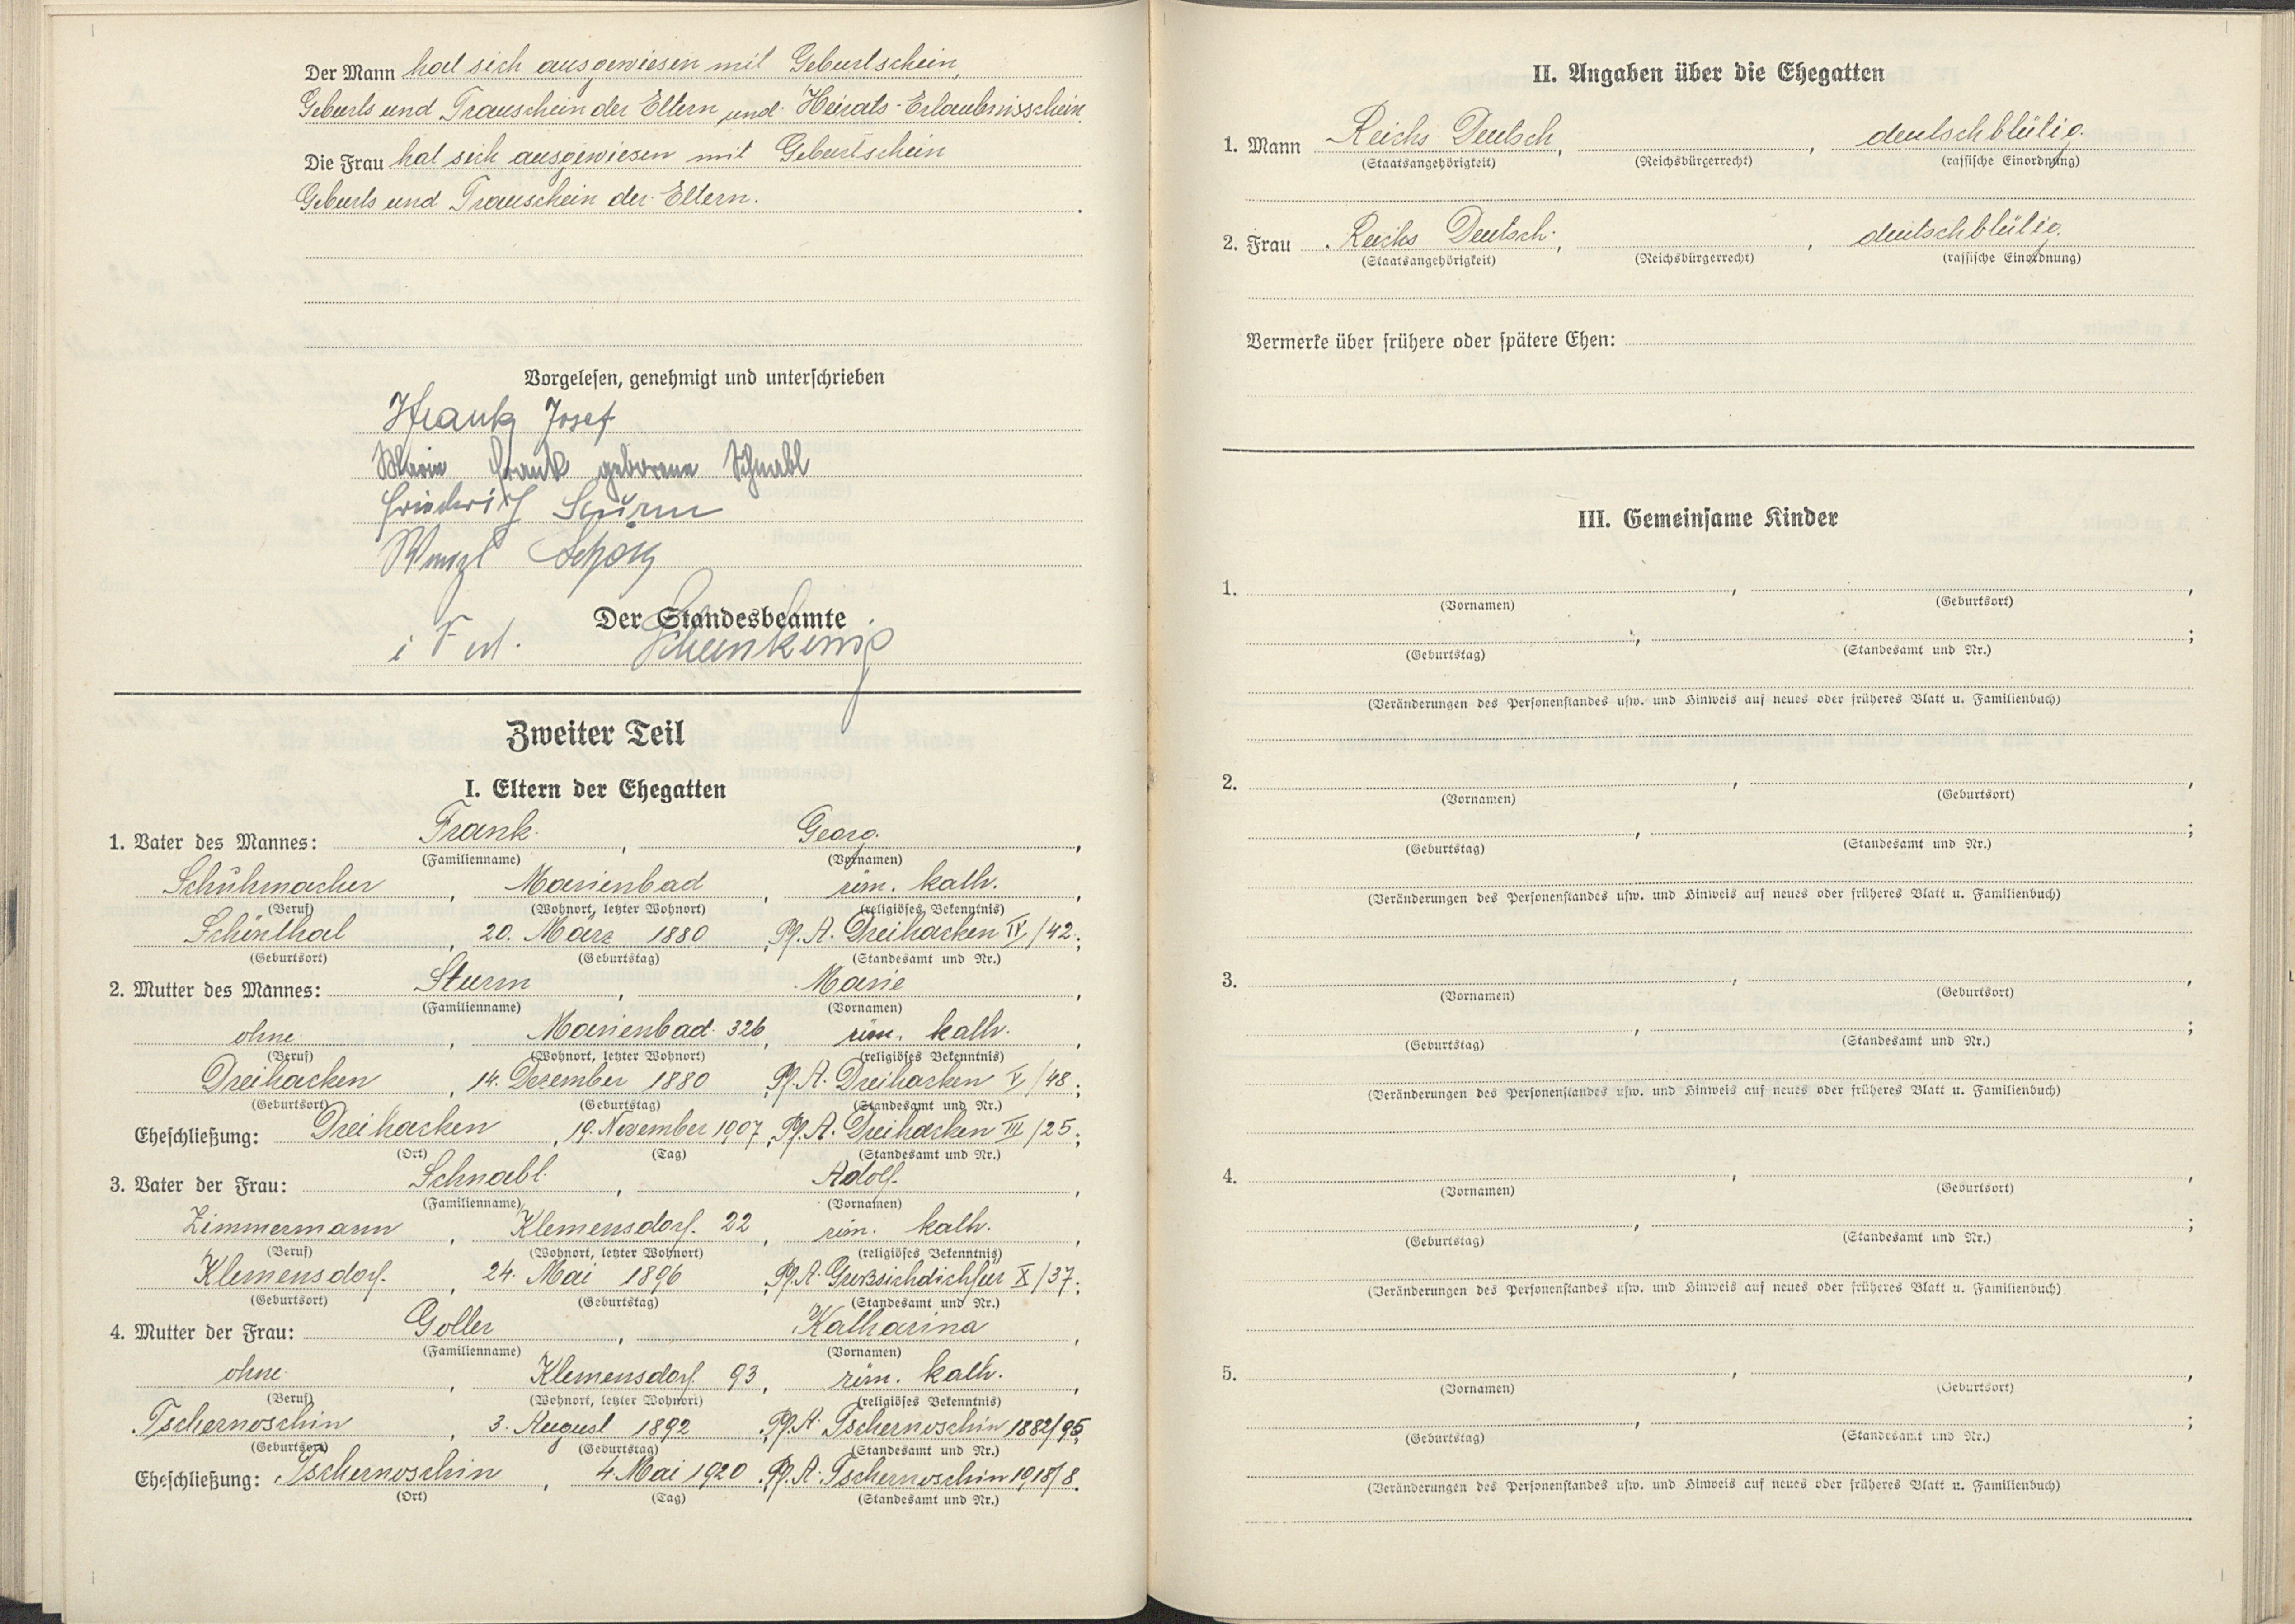 Der Mann hat sich ausgewiesen mit Geburtschein,
Geburts und Trauschein der Eltern und Heirats-Erlaubnisschein
Die Frau hat sich ausgewiesen mit Geburtschein
Geburts und Trauschein der Eltern.
Vorgelesen, genehmigt und unterschrieben
Frank Josef
Marie Frank geborene Schnabl
Friedrich Sturm
Wenzl
Der Standesbeamte
i Vert.
Zweiter Teil
I. Eltern der Ehegatten
1. Vater des Mannes: Frank, Georg,
(Familienname) (Vornamen)
Schuhmacher, Marienbad, röm. kath.,
(Beruf) (Wohnort, letzter Wohnort) (religiöses Bekenntnis)
Schönthal, 20. März 1880, Pf. A. Dreihacken IV/42;
(Geburtsort) (Geburtstag) (Standesamt und Nr.)
2. Mutter des Mannes: Sturm, Marie,
(Familienname) (Vornamen)
ohne, Marienbad 326, röm. kath.,
(Beruf) (Wohnort, letzter Wohnort) (religiöses Bekenntnis)
Dreihacken, 14. Dezember 1880, Pf. A. Dreihacken V/48;
(Geburtsort) (Geburtstag) (Standesamt und Nr.)
Eheschließung: Dreihacken, 19. November 1907, Pf. A. Dreihacken III/25;
(Ort) (Tag) (Standesamt und Nr.)
3. Vater der Frau: Schnabl, Adolf,
(Familienname) (Vornamen)
Zimmermann, Klemensdorf 22, röm. kath.,
(Beruf) (Wohnort, letzter Wohnort) (religiöses Bekenntnis)
Klemensdorf, 24. Mai 1896, Pf. A. X/37;
(Geburtsort) (Geburtstag) (Standesamt und Nr.)
4. Mutter der Frau: Goller, Katharina,
(Familienname) (Vornamen)
ohne, Klemensdorf 93, röm. kath.,
(Beruf) (Wohnort, letzter Wohnort) (religiöses Bekenntnis)
Tschernoschin, 3. August 1892, Pf. A. Tschernoschin 1882/95;
(Geburtsort) (Geburtstag) (Standesamt und Nr.)
Eheschließung: Tschernoschin, 4. Mai 1920, Pf. A. Tschernoschin 1918/8.
(Ort) (Tag) (Standesamt und Nr.)
II. Angaben über die Ehegatten
1. Mann Reichs Deutsch, , deutschblütig.
(Staatsangehörigkeit) (Reichsbürgerrecht) (rassische Einordnung)
2. Frau Reichs Deutsch, , deutschblütig.
(Staatsangehörigkeit) (Reichsbürgerrecht) (rassische Einordnung)
Vermerke über frühere oder spätere Ehen:
III. Gemeinsame Kinder
1. , ,
(Vornamen) (Geburtsort)
, ;
(Geburtstag) (Standesamt und Nr.)
(Veränderungen des Personenstandes usw. und Hinweis auf neues oder früheres Blatt u. Familienbuch)
2. , ,
(Vornamen) (Geburtsort)
, ;
(Geburtstag) (Standesamt und Nr.)
(Veränderungen des Personenstandes usw. und Hinweis auf neues oder früheres Blatt u. Familienbuch)
3. , ,
(Vornamen) (Geburtsort)
, ;
(Geburtstag) (Standesamt und Nr.)
(Veränderungen des Personenstandes usw. und Hinweis auf neues oder früheres Blatt u. Familienbuch)
4. , ,
(Vornamen) (Geburtsort)
, ;
(Geburtstag) (Standesamt und Nr.)
(Veränderungen des Personenstandes usw. und Hinweis auf neues oder früheres Blatt u. Familienbuch)
5. , ,
(Vornamen) (Geburtsort)
, ;
(Geburtstag) (Standesamt und Nr.)
(Veränderungen des Personenstandes usw. und Hinweis auf neues oder früheres Blatt u. Familienbuch)